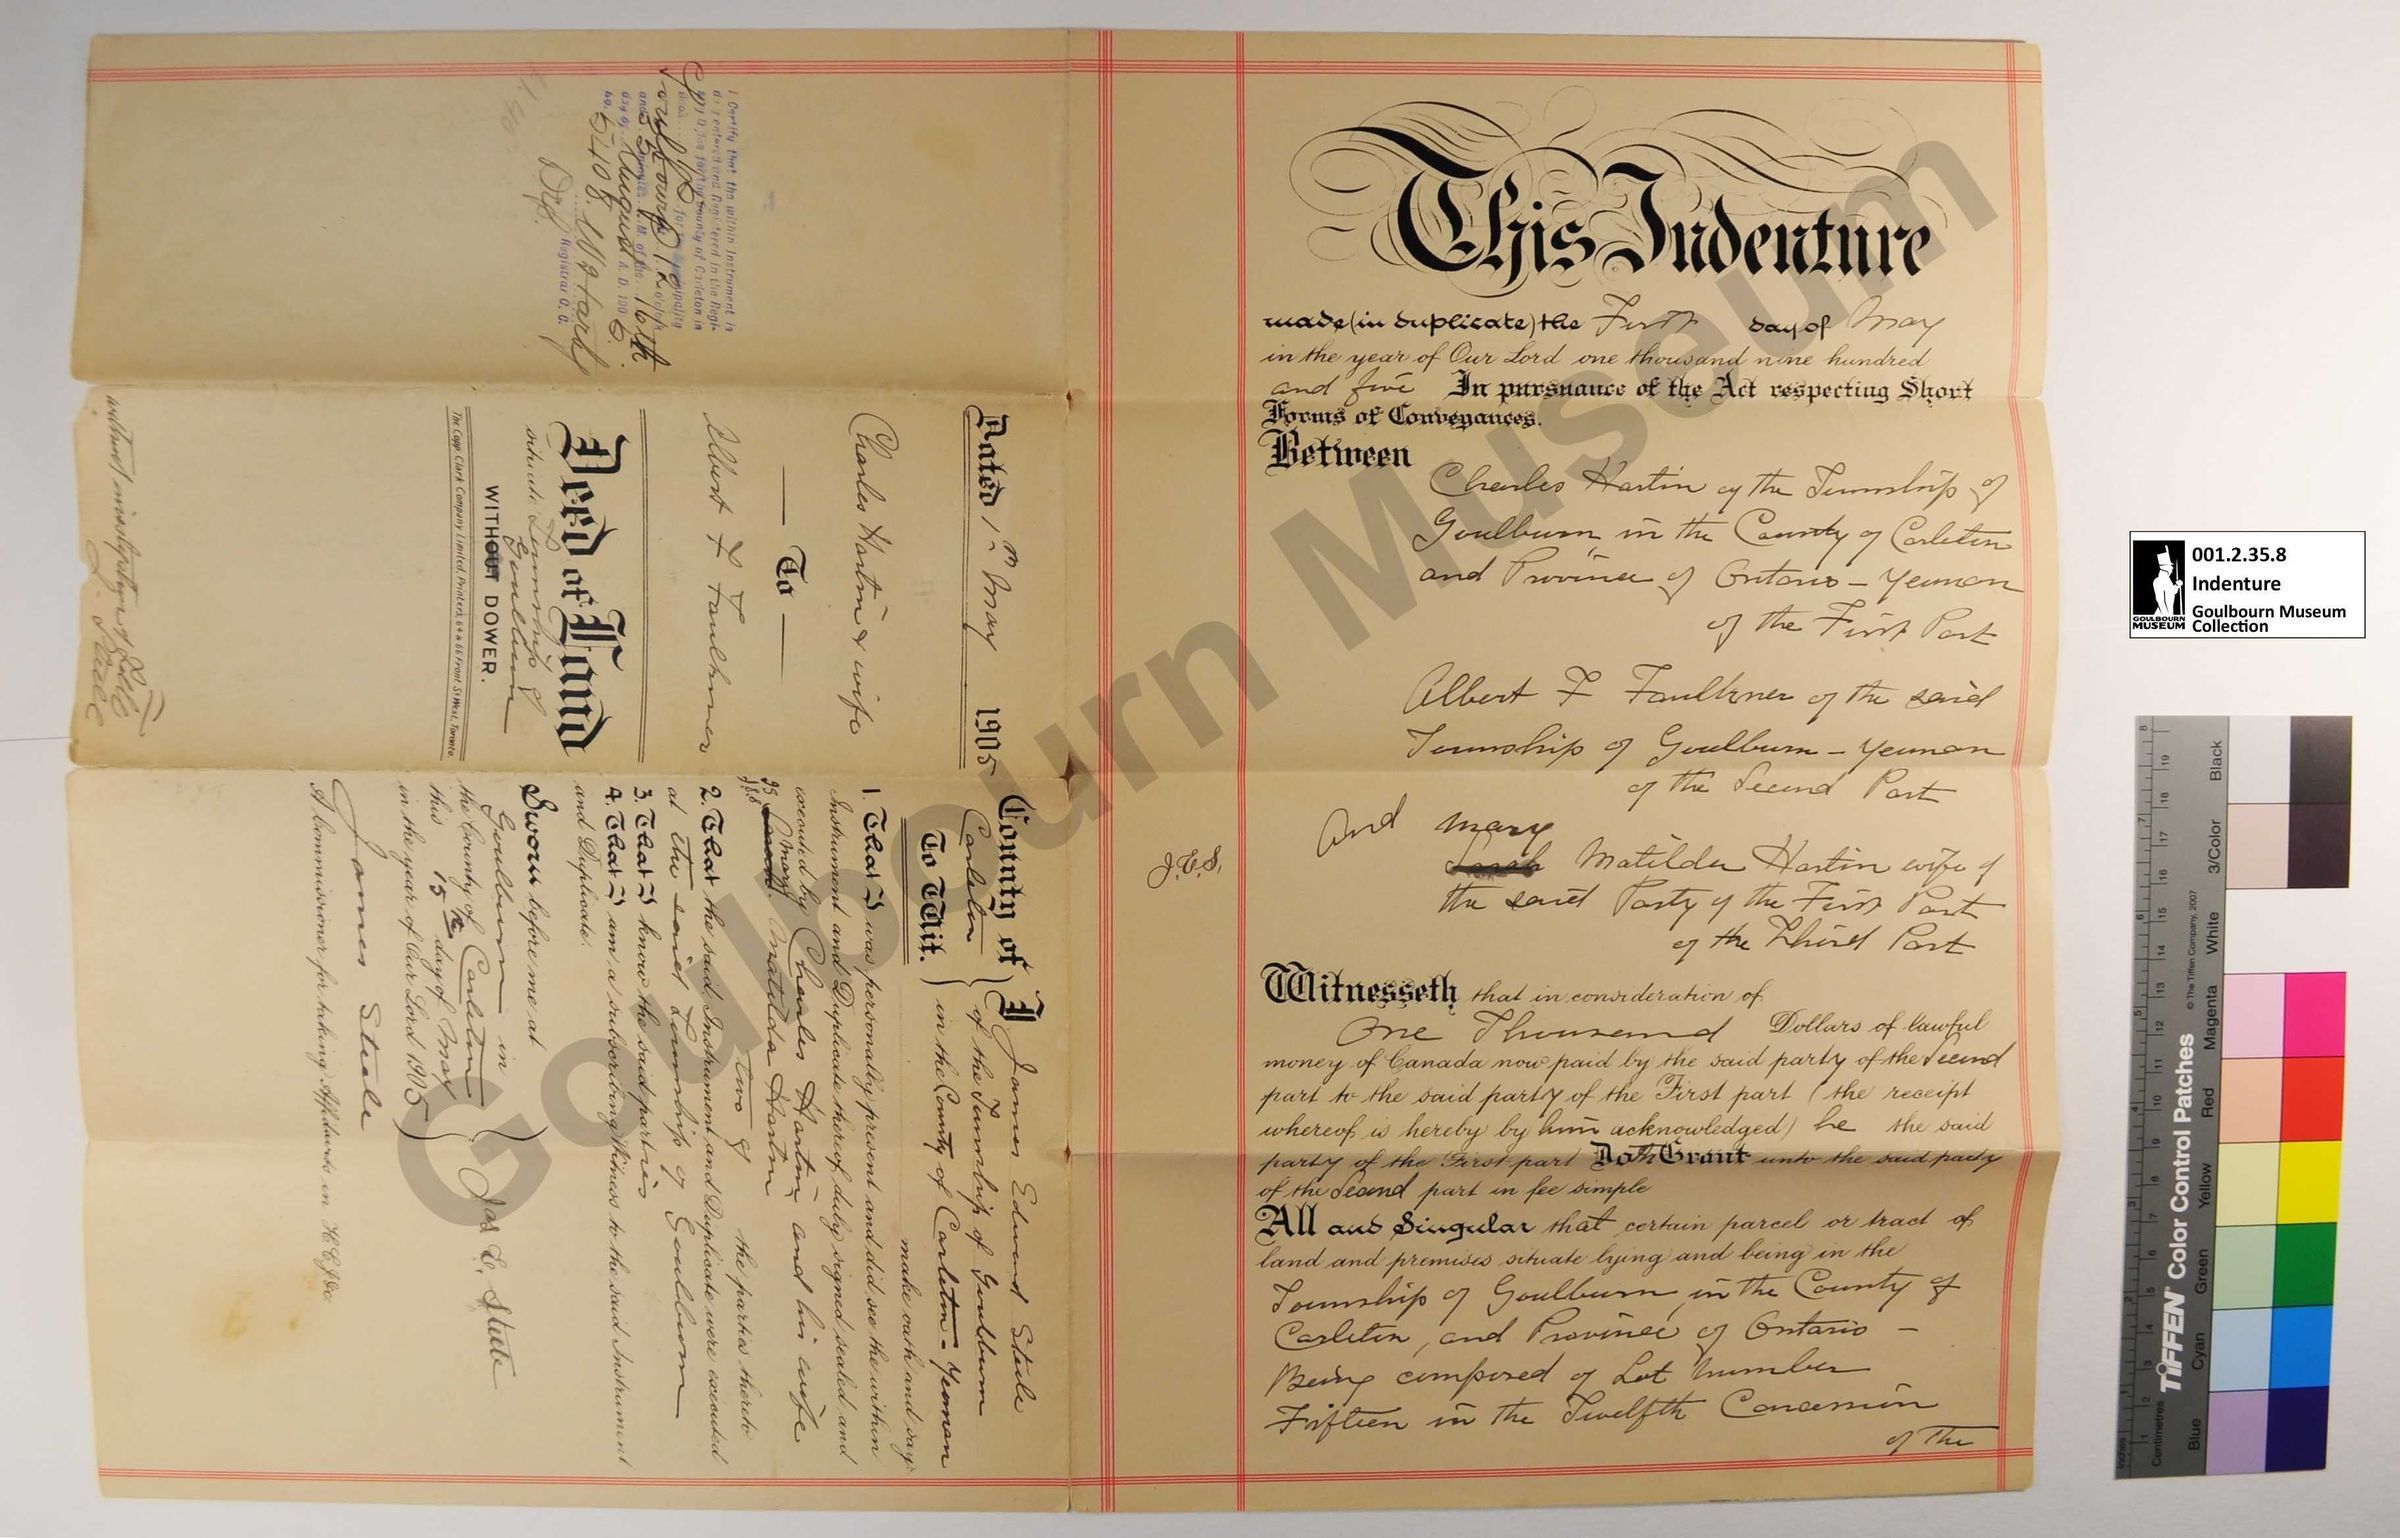 This Indenture
made (in duplicate) the First day of May
in the year of Our Lord one thousand nine hundred
and five In pursuance of the Act respecting Short
Forms of Conveyances.
Between
Charles Hartin of the Township of
Goulburn in the County of Carleton
and Province of Ontario - Yeoman
of the First Part
Albert F Faulkner of the said
Township of Goulburn - Yeoman
of the Second Part
And Mary
Sarah Matilda Hartin wife of
J.E.S.
the said Party of the First Part
of the Third Part
Witnesseth that in consideration of
One Thousand Dollars of lawful
money of Canada now paid by the said party of the Second
part to the said party of the First part (the receipt
whereof is hereby by him acknowledged) he the said
party of the First part Doth Grant unto the said party
of the Second part in fee simple
All and Singular that certain parcel or tract of
land and premises situate lying and being in the
Township of Goulburn in the County of
Carleton, and Province of Ontario -
Being composed of Lot Number
Fifteen in the Twelfth Concession
of the
I Certify that the within Instrument is
duly entered and Registered in the Regi-
for the County of Carleton in
for the Municipality
Goulbourn 12
A.M. of the 16th
day of August A.D. 1905
No. 5408.
Registrar C.C.
Dated 1st May 1905
Charles Hartin & wife
To
Albert F Faulkner
Deed of Land
situate Township of
Goulburn
WITHOUT DOWER.
The Copp Clark Company Limited, Printers, 64 & 66 Front St West, Toronto
County of
Carleton
To Wit.
I James Edward Steele
of the Township of Goulburn
in the County of Carleton - Yeoman
make oath and say:
1. That I was personally present and did see the within
Instrument and Duplicate thereof duly signed sealed and
executed by Charles Hartin and his wife
Mary Matilda Hartin
two of the parties thereto
2. That the said Instrument and Duplicate were executed
at the said Township of Goulburn
3. That I know the said parties
4. That I am a subscribing Witness to the said Instrument
and Duplicate.
Sworn before me at
Goulburn in
the County of Carleton
this 15th day of May
in the year of Our Lord 1905
Jas E. Steele
James Steele
A Commissioner for taking Affidavits in H.C.J. &c
001.2.35.8
Indenture
Goulbourn Museum
Collection
GOULBOURN
MUSEUM
Goulbourn Museum
TIFFEN Color Control Patches
© The Tiffen Company, 2007
Inches
Centimetres
Blue
Cyan
Green
Yellow
Red
Magenta
White
3/Color
Black